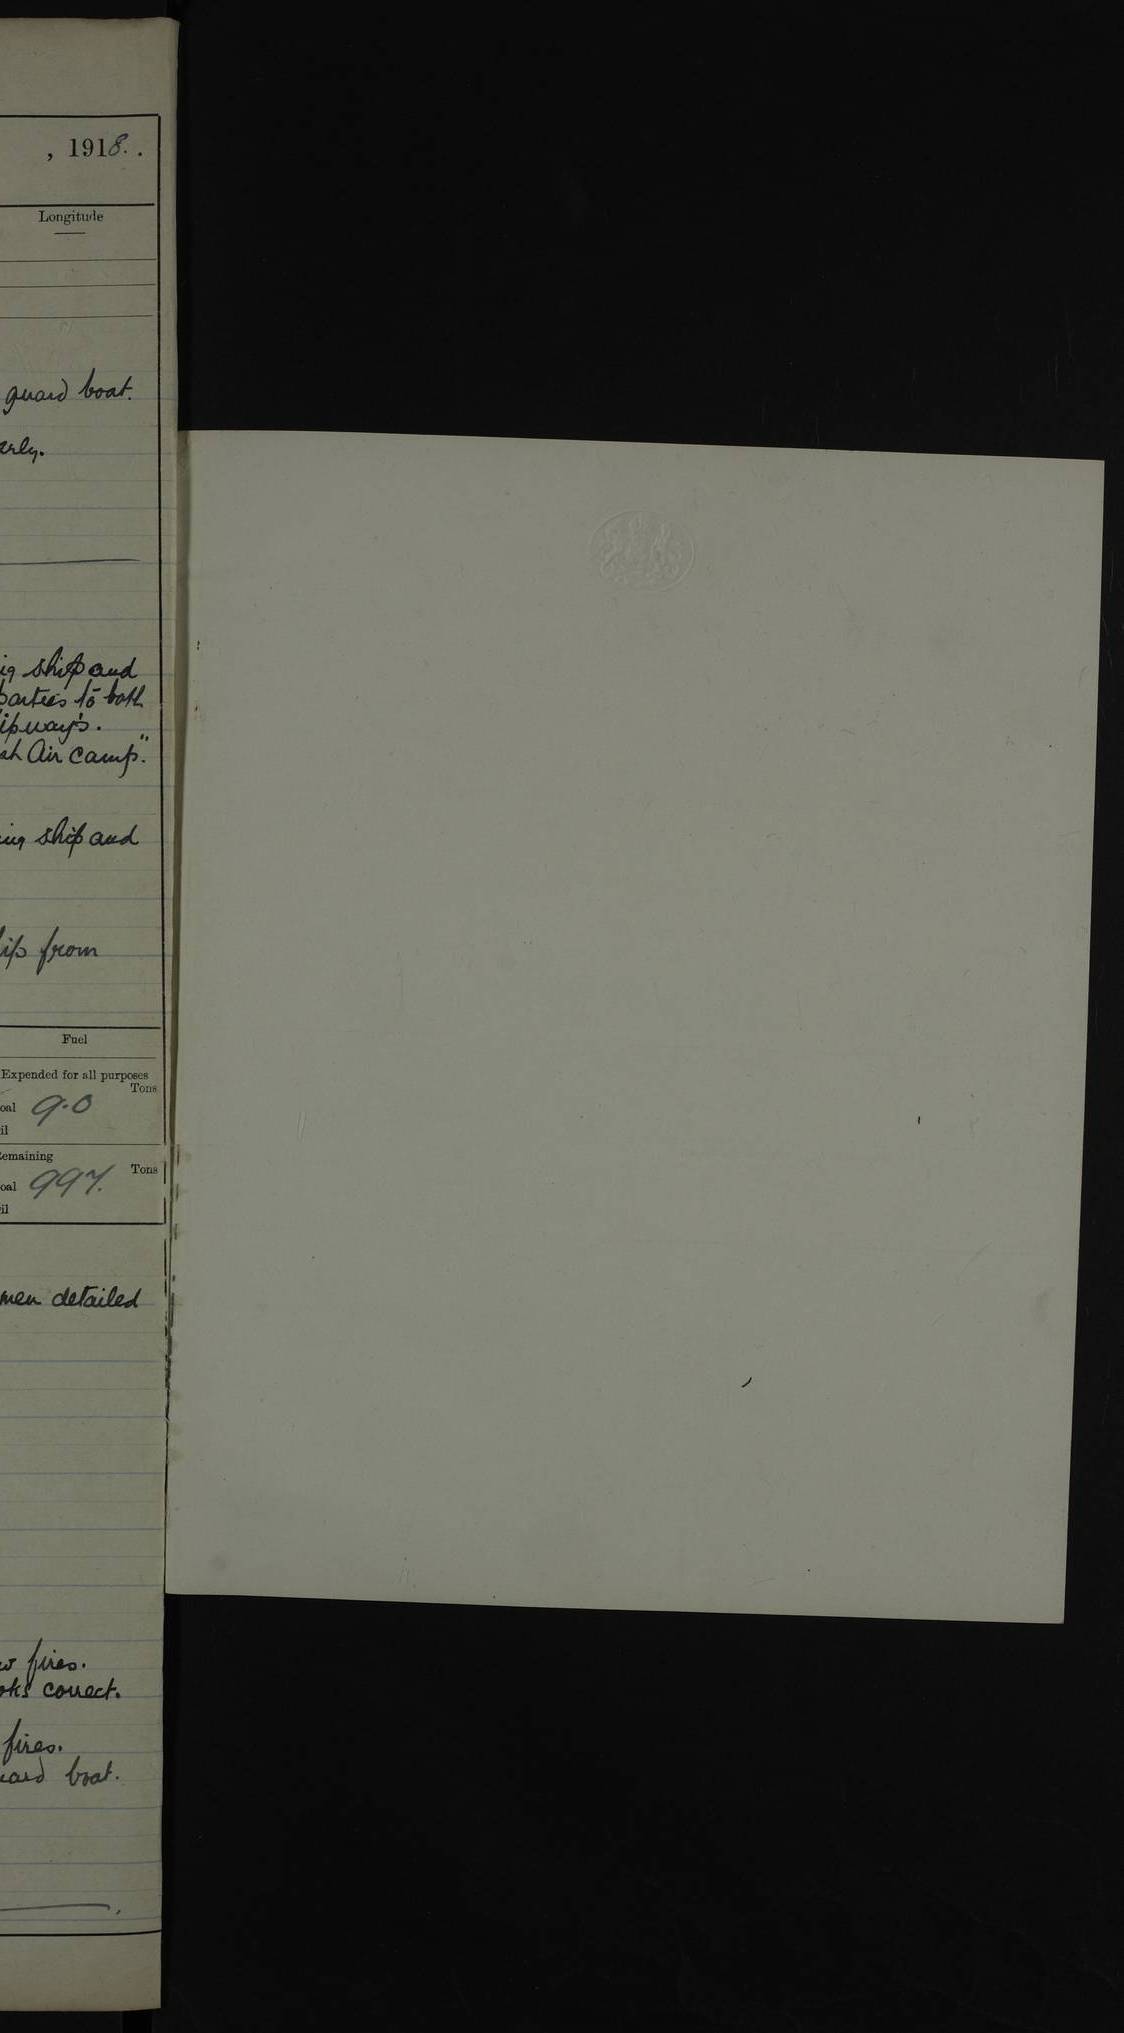 , 1918. .
Longitude
guard boat.
ship and
parties to both
Air Camp."
ship and
from
Fuel
Expended for all purposes
Tons
oal 9.0
il
emaining
Tons
oal 997.
il
men detailed
fires.
correct.
fires.
boat.